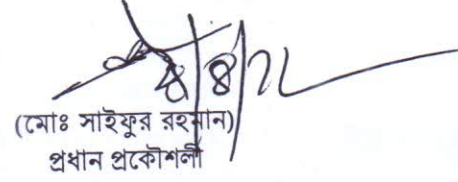 (মোঃ সাইফুর রহমান)
প্রধান প্রকৌশলী